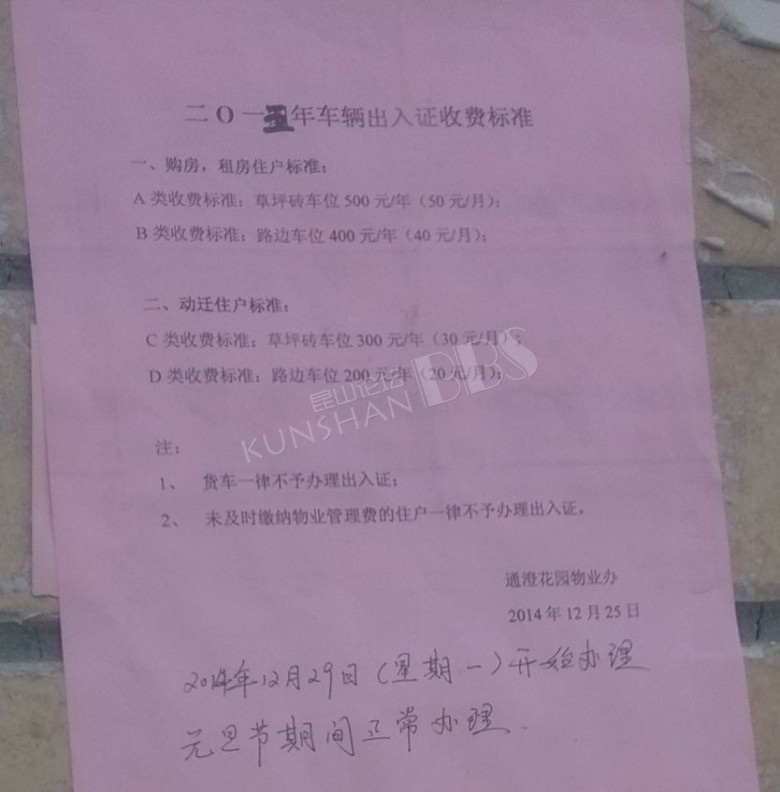 二O一五年车辆出入证收费标准
一、购房，租房住户标准：
A 类收费标准：草坪砖车位 500 元/年（50 元/月）；
B 类收费标准：路边车位 400 元/年（40 元/月）；
二、动迁住户标准：
C 类收费标准：草坪砖车位 300 元/年（30 元/月）；
D 类收费标准：路边车位 200 元/年（20 元/月）；
昆山论坛
KUNSHAN BBS
注：
1、 货车一律不予办理出入证；
2、 未及时缴纳物业管理费的住户一律不予办理出入证。
通澄花园物业办
2014 年 12 月 25 日
2014年12月29日（星期一）开始办理
元旦节期间正常办理.